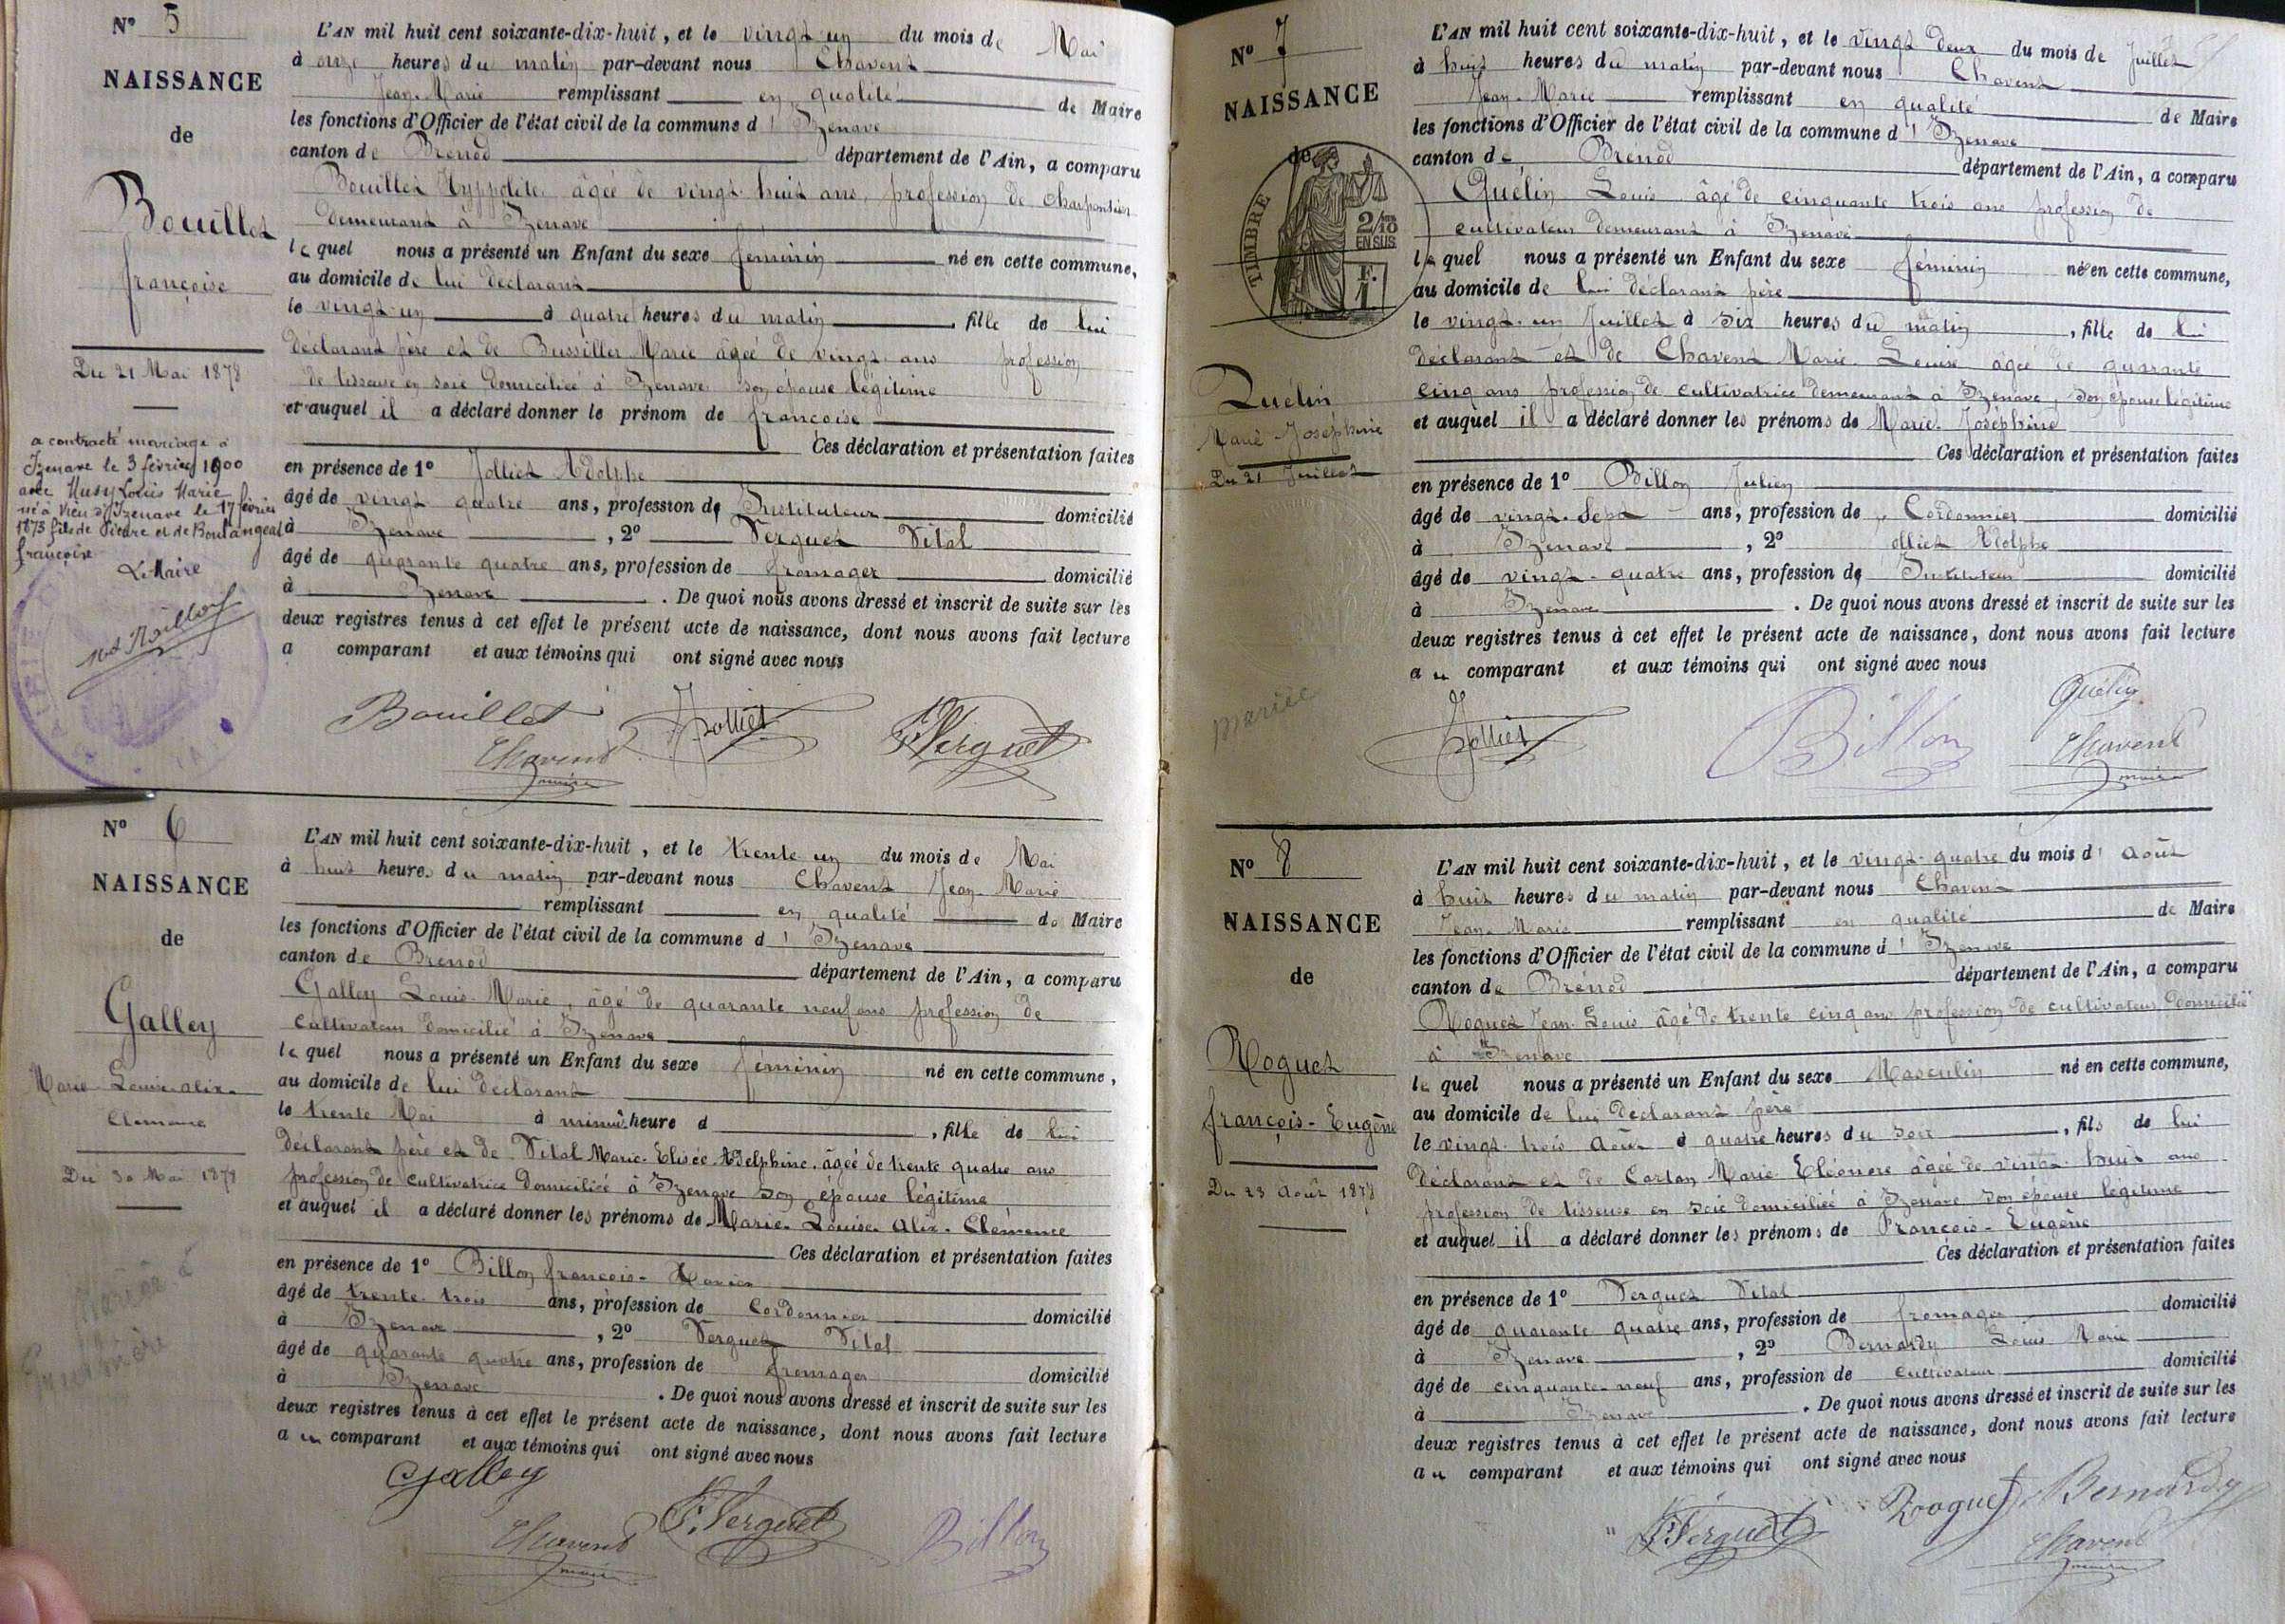 N° 5
NAISSANCE
de
Bouillet
françoise
Du 21 Mai 1878
a contracté mariage à
Izenave le 3 février 1900
avec Husy Louis Marie
né à Vieu d'Izenave le 17 février
1873 fils de Pierre et de Boulangeat
françoise
Le Maire
L'AN mil huit cent soixante-dix-huit, et le vingt un du mois de Mai
à onze heures du matin par-devant nous Chavent
Jean-Marie remplissant en qualité de Maire
les fonctions d'Officier de l'état civil de la commune d'Izenave
canton de Brénod département de l'Ain, a comparu
Bouillet Hyppolite âgée de vingt huit ans, profession de charpentier
demeurant à Izenave
lequel nous a présenté un Enfant du sexe féminin né en cette commune,
au domicile de lui déclarant
le vingt-un à quatre heures du matin, fille de lui
déclarant père et de Bussillet Marie âgée de vingt ans profession
de tisseuse en soie domiciliée à Izenave son épouse légitime
et auquel il a déclaré donner le prénom de françoise
Ces déclaration et présentation faites
en présence de 1° Jolliet Adolphe
âgé de vingt quatre ans, profession de Instituteur domicilié
à Izenave, 2° Verguet Vital
âgé de quarante quatre ans, profession de fromager domicilié
à Izenave. De quoi nous avons dressé et inscrit de suite sur les
deux registres tenus à cet effet le présent acte de naissance, dont nous avons fait lecture
a comparant et aux témoins qui ont signé avec nous
Bouillet Jolliet Verguet
Chavent
maire
N° 6
NAISSANCE
de
Galley
Marie-Louise-alix-
Clémence
Du 30 Mai 1878
L'AN mil huit cent soixante-dix-huit, et le trente un du mois de Mai
à huit heures du matin par-devant nous Chavent Jean-Marie
remplissant en qualité de Maire
les fonctions d'Officier de l'état civil de la commune d'Izenave
canton de Brénod département de l'Ain, a comparu
Galley Louis-Marie, âgé de quarante neuf ans profession de
cultivateur domicilié à Izenave
lequel nous a présenté un Enfant du sexe féminin né en cette commune,
au domicile de lui déclarant
le trente Mai à minuit heure d, fille de lui
déclarant père et de Vital Marie-Elisée Adelphine, âgée de trente quatre ans
profession de cultivatrice domiciliée à Izenave son épouse légitime
et auquel il a déclaré donner les prénoms de Marie-Louise-Alix-Clémence
Ces déclaration et présentation faites
en présence de 1° Billon françois-Xavier
âgé de trente-trois ans, profession de Cordonnier domicilié
à Izenave, 2° Verguet Vital
âgé de quarante quatre ans, profession de fromager domicilié
à Izenave. De quoi nous avons dressé et inscrit de suite sur les
deux registres tenus à cet effet le présent acte de naissance, dont nous avons fait lecture
au comparant et aux témoins qui ont signé avec nous
Galley
Chavent Verguet Billon
maire
N° 7
NAISSANCE
de
TIMBRE
2/10
EN SUS
F.
1
Quélin
Marie Joséphine
Du 21 Juillet
mariée
L'AN mil huit cent soixante-dix-huit, et le vingt deux du mois de Juillet
à huit heures du matin par-devant nous Chavent
Jean-Marie remplissant en qualité de Maire
les fonctions d'Officier de l'état civil de la commune d'Izenave
canton de Brénod département de l'Ain, a comparu
Quélin Louis âgé de cinquante trois ans profession de
cultivateur demeurant à Izenave
lequel nous a présenté un Enfant du sexe féminin né en cette commune,
au domicile de lui déclarant père
le vingt-un Juillet à six heures du matin, fille de lui
déclarant et de Chavent Marie-Louise âgée de quarante
cinq ans profession de cultivatrice demeurant à Izenave, son épouse légitime
et auquel il a déclaré donner les prénoms de Marie-Joséphine
Ces déclaration et présentation faites
en présence de 1° Billon Julien
âgé de vingt-sept ans, profession de Cordonnier domicilié
à Izenave, 2° olliet Adolphe
âgé de vingt-quatre ans, profession de Instituteur domicilié
à Izenave. De quoi nous avons dressé et inscrit de suite sur les
deux registres tenus à cet effet le présent acte de naissance, dont nous avons fait lecture
au comparant et aux témoins qui ont signé avec nous
Quélin
Jolliet Billon Chavent
maire
N° 8
NAISSANCE
de
Roguet
françois-Eugène
Du 23 Août 1878
L'AN mil huit cent soixante-dix-huit, et le vingt-quatre du mois d'août
à huit heures du matin par-devant nous Chavent
Jean-Marie remplissant en qualité de Maire
les fonctions d'Officier de l'état civil de la commune d'Izenave
canton de Brénod département de l'Ain, a comparu
Roguet Jean-Louis âgé de trente cinq ans profession de cultivateur domicilié
à Izenave
lequel nous a présenté un Enfant du sexe Masculin né en cette commune,
au domicile de lui déclarant père
le vingt-trois Août à quatre heures du soir, fils de lui
déclarant et de Carlan Marie Eléonore âgée de vingt-huit ans
profession de tisseuse en soie domiciliée à Izenave son épouse légitime
et auquel il a déclaré donner les prénoms de François-Eugène
Ces déclaration et présentation faites
en présence de 1° Verguet Vital
âgé de quarante quatre ans, profession de fromager domicilié
à Izenave, 2° Bernardy Louis Marie
âgé de cinquante-neuf ans, profession de cultivateur domicilié
à Izenave. De quoi nous avons dressé et inscrit de suite sur les
deux registres tenus à cet effet le présent acte de naissance, dont nous avons fait lecture
au comparant et aux témoins qui ont signé avec nous
Verguet Roguet Bernardy
Chavent
maire